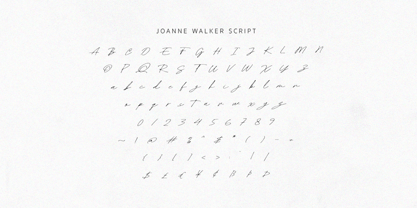 JOANNE WALKER SCRIPT
A B C D E F G H I J K L M N
O P Q R S T U V W X Y Z
a b c d e f g h i j k l m n
o p q r s t u v w x y z
0 1 2 3 4 5 6 7 8 9